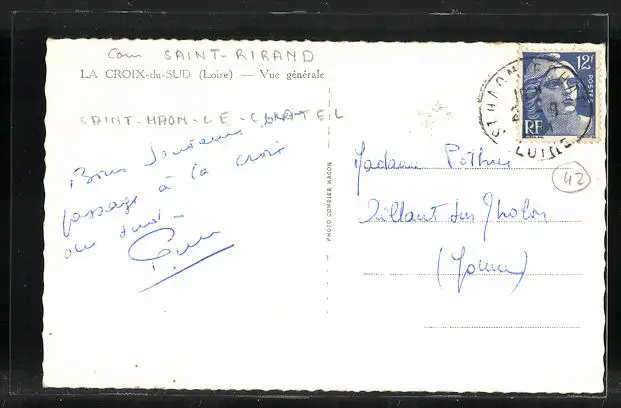 Com SAINT-RIRAND
LA CROIX-du-SUD (Loire) — Vue générale
SAINT-HAON-LE-CHATEL
Bons Souvenirs
passage à la croix
du Sud -
PHOTO COMBIER MACON
12F
POSTES
RF
ST HAON LE CHATEL
LOIRE
42
Madame Pothier
Aillant sur Tholon
(Yonne)